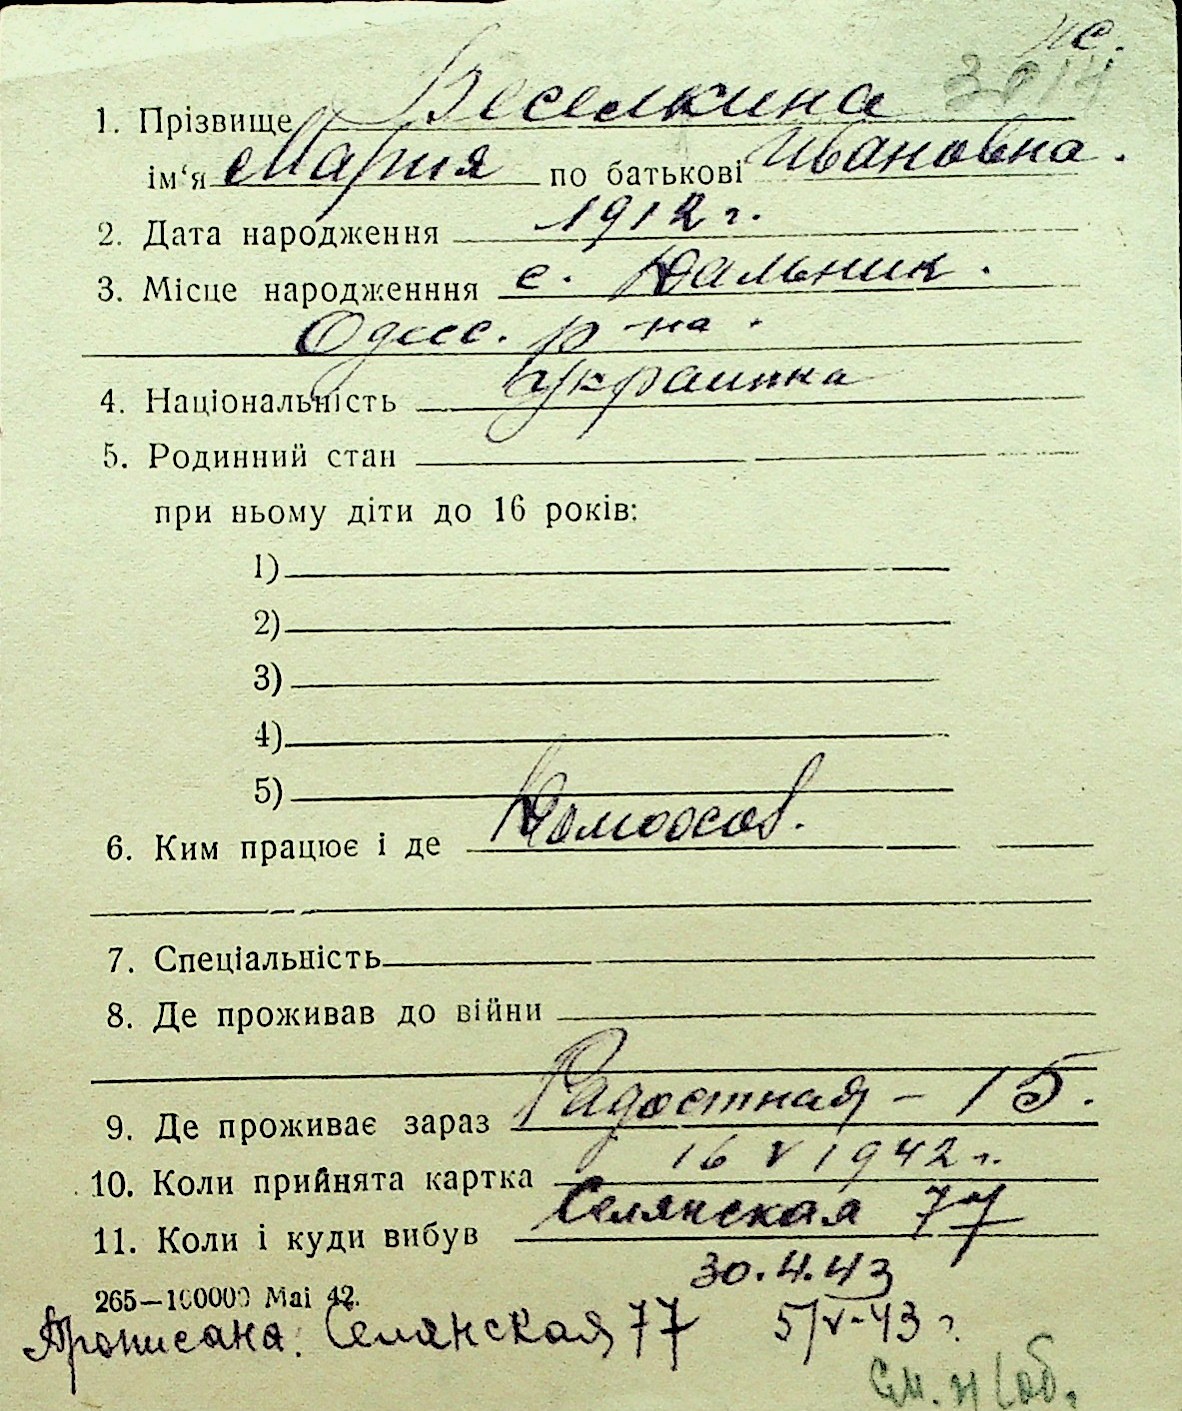 нс.
1. Прізвище Веселкина
ім'я Мария по батькові Ивановна.
2. Дата народження 1912 г.
3. Місце народженння с. Дальник.
Одесс. р-на.
4. Національність Украинка
5. Родинний стан
при ньому діти до 16 років:
1)
2)
3)
4)
5)
6. Ким працює і де Домохоз.
7. Спеціальність
8. Де проживав до війни
9. Де проживає зараз Радостная – 15.
10. Коли прийнята картка 16 V 1942 г.
11. Коли і куди вибув Селянская 77
30.4.43
265—100000 Mai 42.
Прописана: Селянская 77 5/V-43 г.
См. н/об.